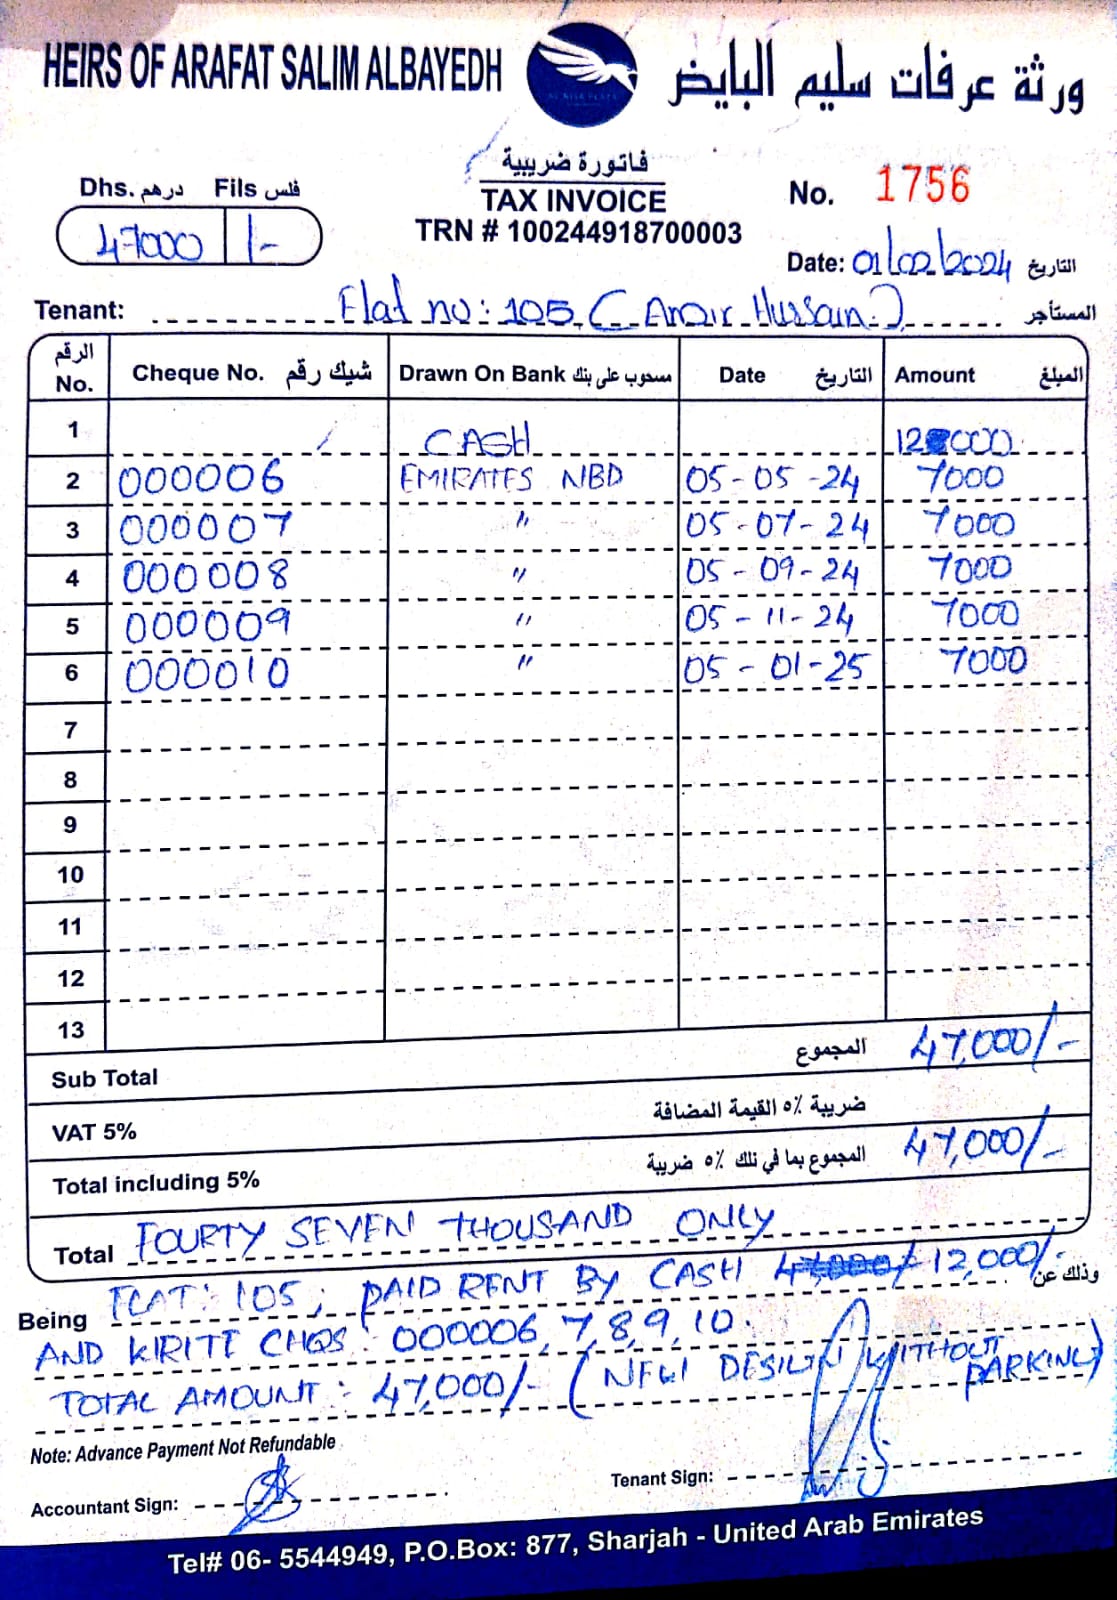 HEIRS OF ARAFAT SALIM ALBAYEDH ورثة عرفات سليم البايض
فاتورة ضريبية
TAX INVOICE
TRN # 100244918700003
Dhs. درهم Fils فلس
47000 /-
No. 1756
Date: 01/02/2024 التاريخ
Tenant: Flat no: 105 ( Amir Hussain ) المستأجر
الرقم No. Cheque No. شيك رقم Drawn On Bank مسحوب على بنك Date التاريخ Amount المبلغ
1 CASH 12000
2 000006 EMIRATES NBD 05-05-24 7000
3 000007 " 05-07-24 7000
4 000008 " 05-09-24 7000
5 000009 " 05-11-24 7000
6 000010 " 05-01-25 7000
7
8
9
10
11
12
13
Sub Total المجموع 47,000/-
VAT 5% ضريبة ٥٪ القيمة المضافة
Total including 5% المجموع بما في ذلك ٥٪ ضريبة 47,000/-
Total FOURTY SEVEN THOUSAND ONLY
Being FLAT: 105, PAID RENT BY CASH 12,000/- وذلك عن
AND CHQS: 000006, 7, 8, 9, 10.
TOTAL AMOUNT: 47,000/- ( WITHOUT PARKING)
Note: Advance Payment Not Refundable
Accountant Sign: Tenant Sign:
Tel# 06- 5544949, P.O.Box: 877, Sharjah - United Arab Emirates